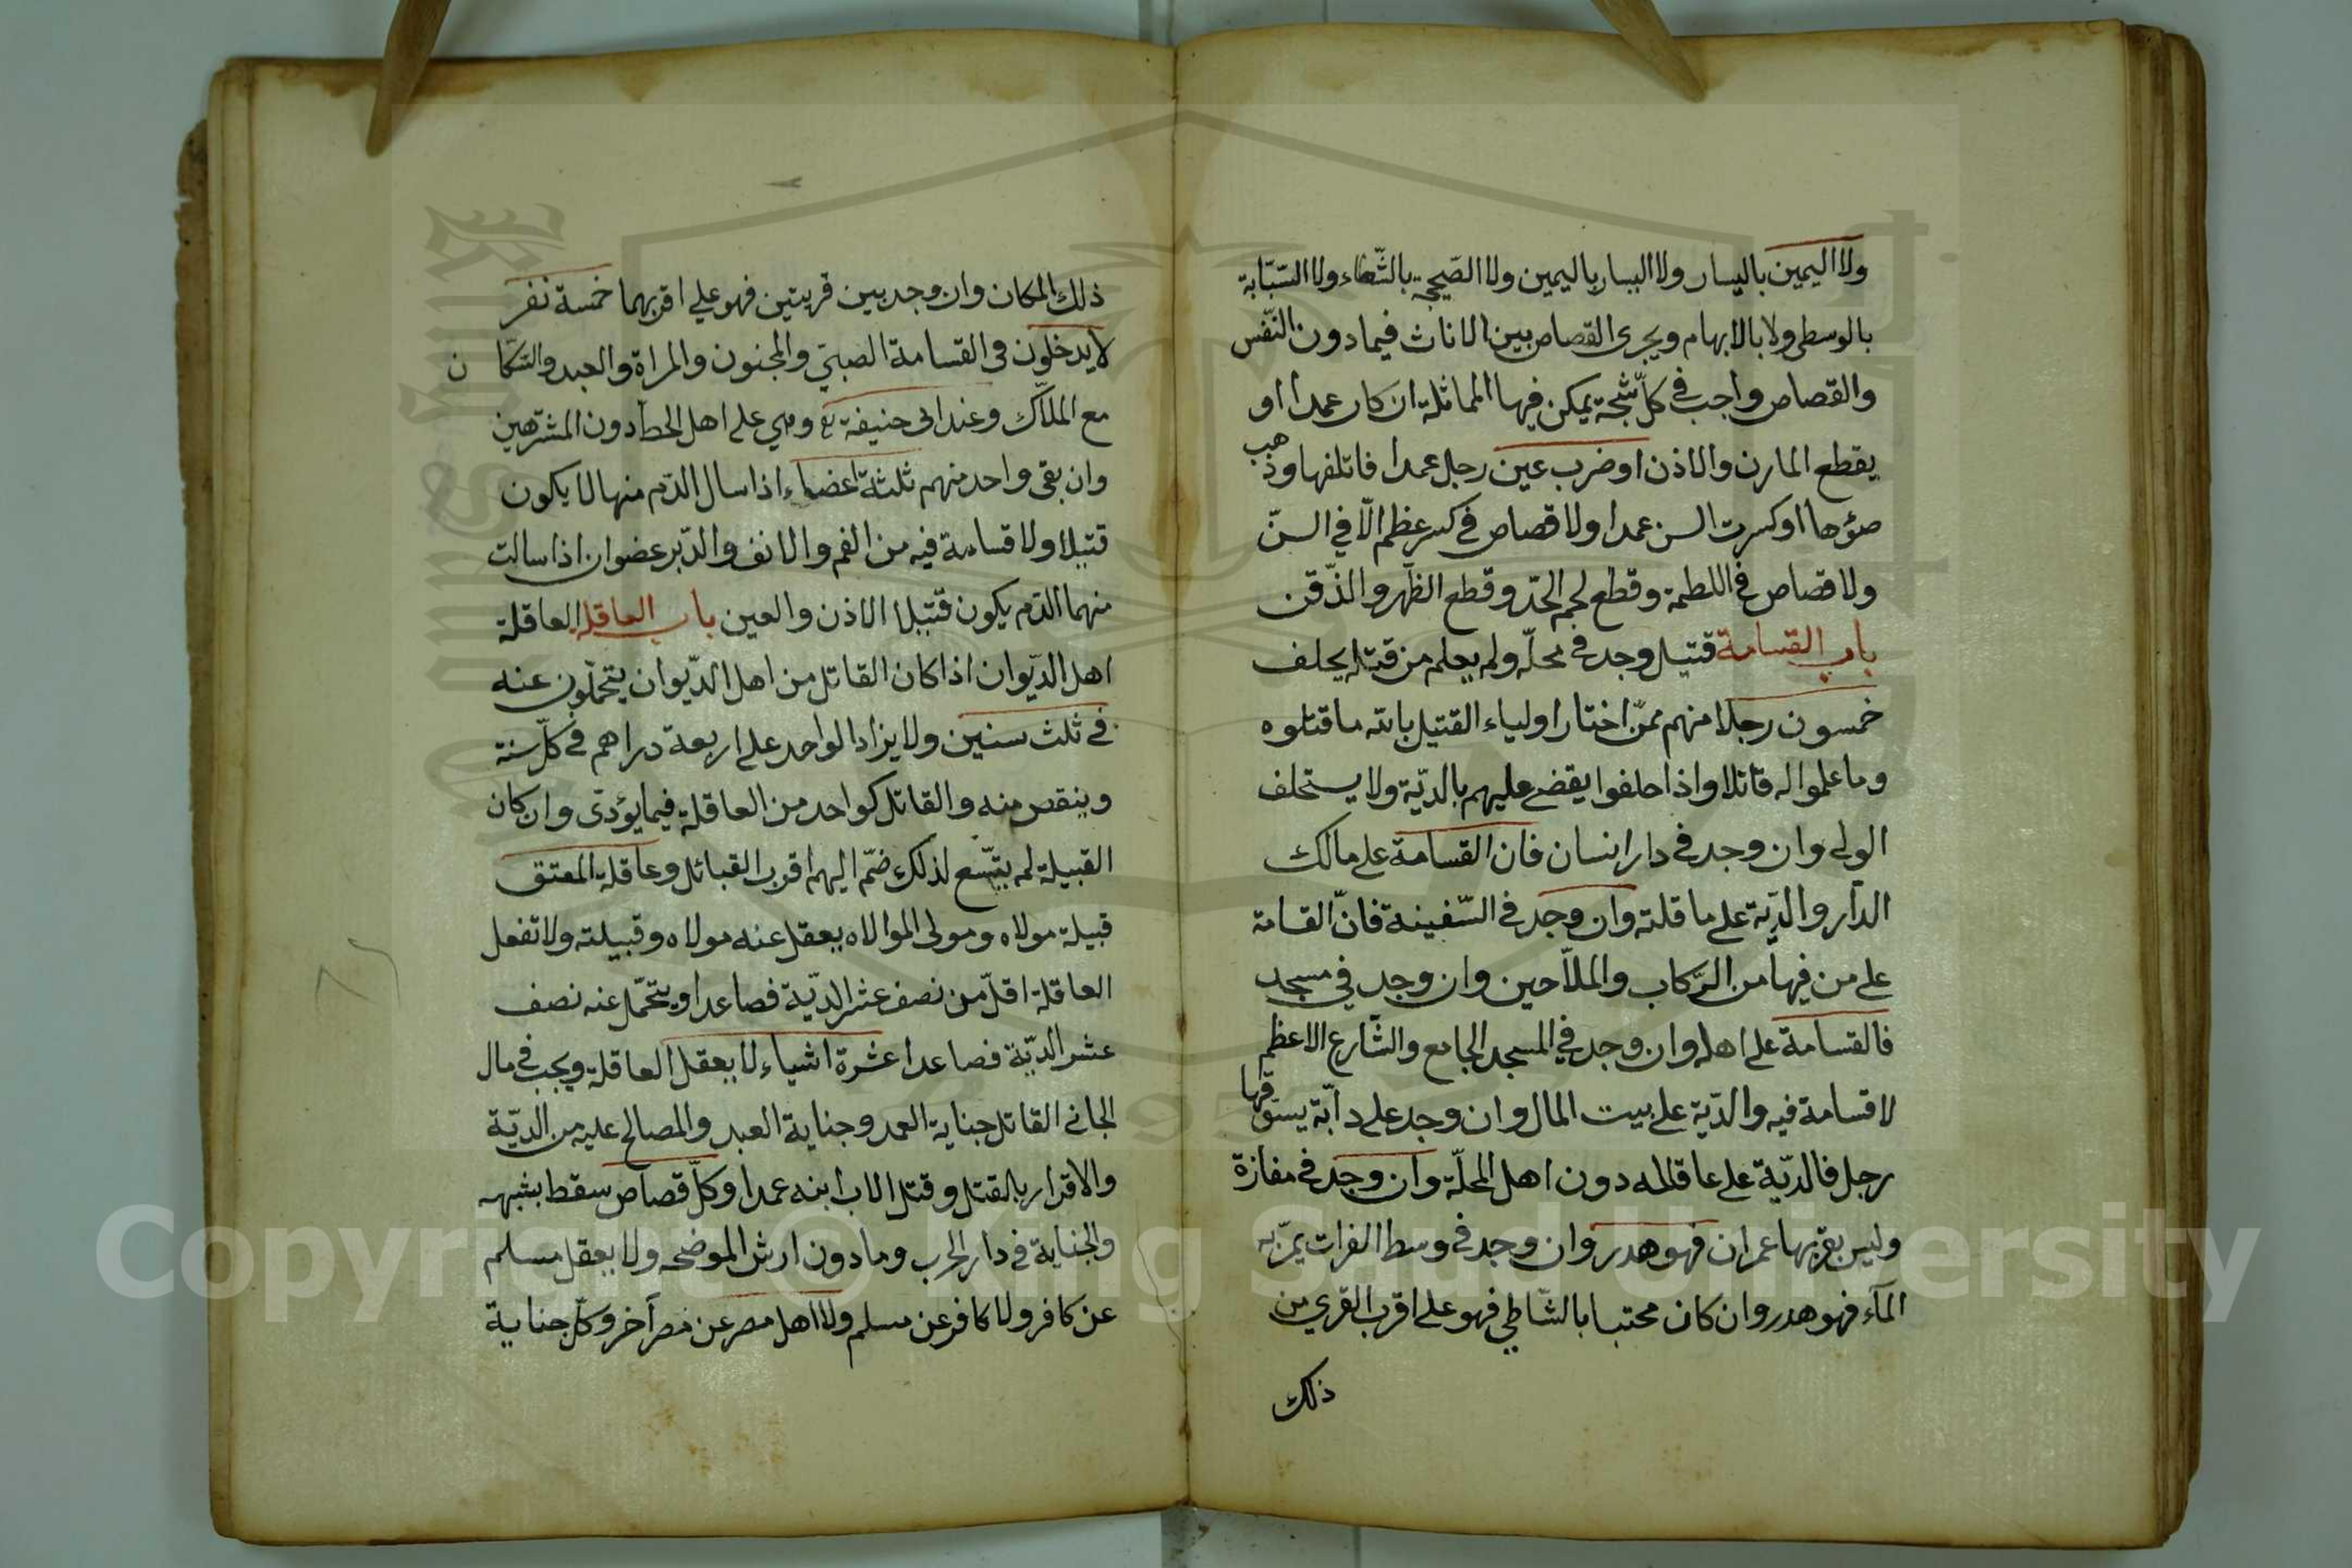 ولا اليمين باليسار ولا اليسار باليمين ولا الصحيحة بالشّلاء ولا السّبّابة
بالوسطى ولا بالابهام ويجرى القصاص بين الاناث فيما دون النّفس
والقصاص واجب فى كلّ شجّة يمكن فيها المماثلة ان كان عمدا او
يقطع المارن والاذن او ضرب عين رجل عمدا فاتلفها وذهب
ضوٴها او كسرت السن عمدا ولا قصاص فى كسر عظم الّا في السنّ
ولا قصاص فى اللطمة وقطع لحم الخدّ وقطع الظّهر والذّقن
باب القسامة قتيل وجد فى محلّه ولم يعلم من قتله يحلف
خمسون رجلا منهم ممّن اختار اولياء القتيل بالله ما قتلوه
وما علموا له قاتلا واذا حلفوا يقضى عليهم بالديّة ولا يستحلف
الولى وان وجد فى دار انسان فان القسامة على مالك
الدّار والديّة على عاقلته وان وجد فى السّفينة فانّ القسامة
على من فيها من الرّكاب والملاّحين وان وجد في مسجد
فالقسامة على اهله وان وجد في المسجد الجامع والشّارع الاعظم
لا قسامة فيه والدّية على بيت المال وان وجد على دابّة يسوقها
رجل فالديّة على عاقلته دون اهل المحلّة وان وجد فى مفازة
وليس بقربها عمران فهو هدر وان وجد فى وسط الفرات يمرّ به
المآء فهو هدر وان كان محتبسا بالشّاطي فهو على اقرب القرى من
ذلك
ذلك المكان وان وجد بين قريتين فهو على اقربهما خمسة نفر
لا يدخلون فى القسامة الصبىّ والمجنون والمراة والعبد والسّكّان
مع الملاّك وعند ابى حنيفة رح وهي على اهل الخطّة دون المشترين
وان بقى واحد منهم ثلثة اعضاء اذا سال الدّم منها لا يكون
قتيلا ولا قسامة فيه من الفم والانف والدّبر عضوان اذا سالت
منهما الدّم يكون قتيلا الاذن والعين باب العاقلة العاقلة
اهل الدّيوان اذا كان القاتل من اهل الدّيوان يتحمّلون عنه
فى ثلث سنين ولا يزاد الواحد على اربعة دراهم فى كلّ سنة
وينقص منه والقاتل كواحد من العاقلة فيما يؤدّى وان كان
القبيلة لم يتّسع لذلك ضمّ اليهم اقرب القبائل وعاقلة المعتق
قبيلة مولاه ومولى الموالاه يعقل عنه مولاه وقبيلته ولا تفعل
العاقلة اقلّ من نصف عشر الديّة فصاعدا ويتحمّل عنه نصف
عشر الديّة فصاعدا عشرة اشياء لا يعقل العاقلة ويجب فى مال
الجانى القاتل جناية العمد وجناية العبد والمصالح عليه من الديّة
والاقرار بالقتل وقتل الاب ابنه عمدا وكلّ قصاص سقط بشبهه
والجناية فى دار الحرب وما دون ارش الموضحه ولا يعقل مسلم
عن كافر ولا كافر عن مسلم ولا اهل مصر عن مصر آخر وكلّ جناية
Copyright © King Saud University